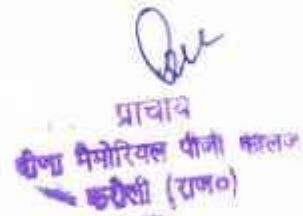 प्राचार्य
वीणा मैमोरियल पीजी कालेज
करौली (राज०)